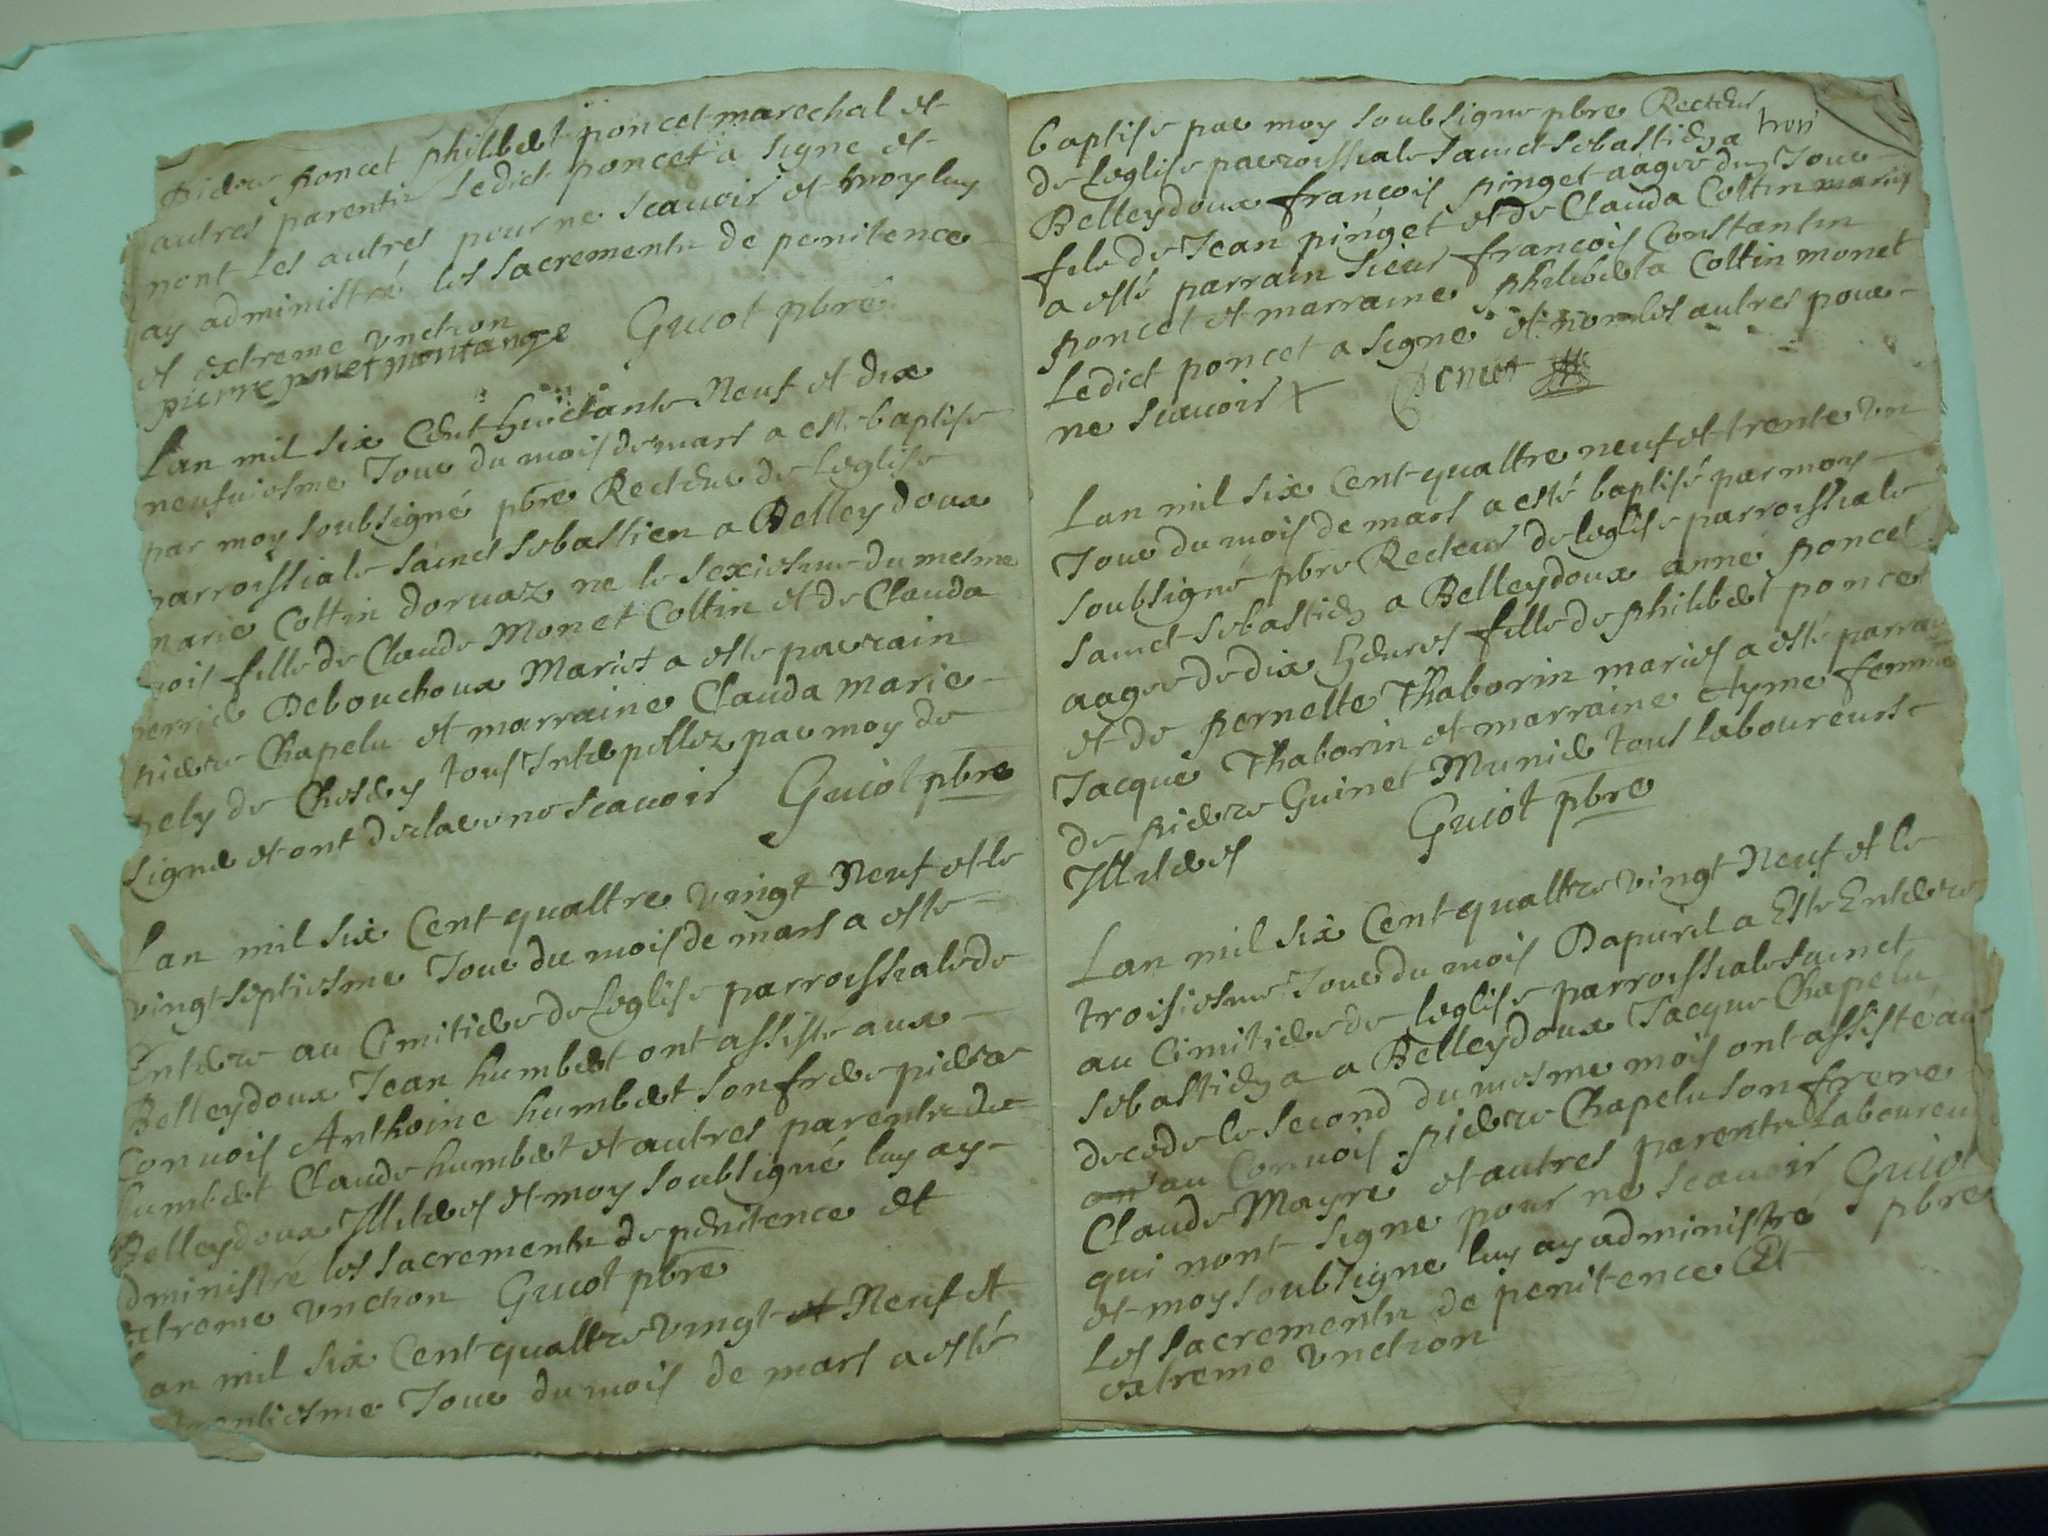 pierre poncet philibert poncet marechal et
autres parentz Ledict poncet a signe et
nont Les autres pour ne scauoir et moy luy
ay administré les sacrementz de penitence
et extreme vnction
pierre ponet montange Guiot pbre
Lan mil six Cent huictante Neuf et dix
neufuiesme Jour du mois de mars a este baptise
par moy soubsigné pbre Recteur de Leglise
parroissiale sainct sebastien a Belleydoux
marie Cottin doruaz ne le sexiesme du mesme
mois fille de Claude Monet Cottin et de Clauda
perrier Debouchoux Maries a este parrain
pierre Chapelu et marraine Clauda marie
de Choisey tous Interpellez par moy de
signer et ont declare ne scauoir Guiot pbre
Lan mil six Cent quattre vingt Neuf et le
vingt septiesme Jour du mois de mars a este
Enterre au Cimitiere de Leglise parroissiale de
Belleydoux Jean humbert ont assiste aux
Conuois Anthoine humbert son frere pierre
humbert Claude humbert et autres parentz de
Belleydoux Illiteres et moy soubsigné luy ay
administré les sacrementz de penitence et
extreme vnction Guiot pbre
Lan mil six Cent quattre vingt et Neuf et
trentiesme Jour du mois de mars a esté
baptise par moy soubsigne pbre Recteur
de Leglise parroissiale sainct sebastien a
Belleydoux francois pinget aagee dun Jour
fils de Jean pinget et de Clauda Cottin maries
a esté parrain sieur francois Constantin
poncet et marraine philiberta Cottin monet
Ledict poncet a signe et non les autres pour
ne scauoir Poncet
Lan mil six Cent quattre neuf et trente vn
Jour du mois de mars a esté baptisé par moy
soubsigné pbre Recteur de leglise parroissiale
sainct sebastien a Belleydoux anne poncet
aagee de dix heures fille de philibert poncet
et de pernette Thaborin maries a esté parrain
Jacque Thaborin et marraine Ayme femme
de pierre Guinet Munier tous laboureurs
Illiteres Guiot pbre
Lan mil six Cent quattre vingt Neuf et le
troisiesme Jour du mois Dapuril a Este Enterre
au Cimitiere de leglise parroissiale sainct
sebastien a a Belleydoux Jacque Chapelu
decede le second du mesme mois ont assisté au
au Conuois pierre Chapelu son frere
Claude Mayre et autres parentz Laboureurs
qui nont signe pour ne scauoir Guiot
et moy soubsigne luy ay administré pbre
Les sacrementz de penitence Et
extreme vnction